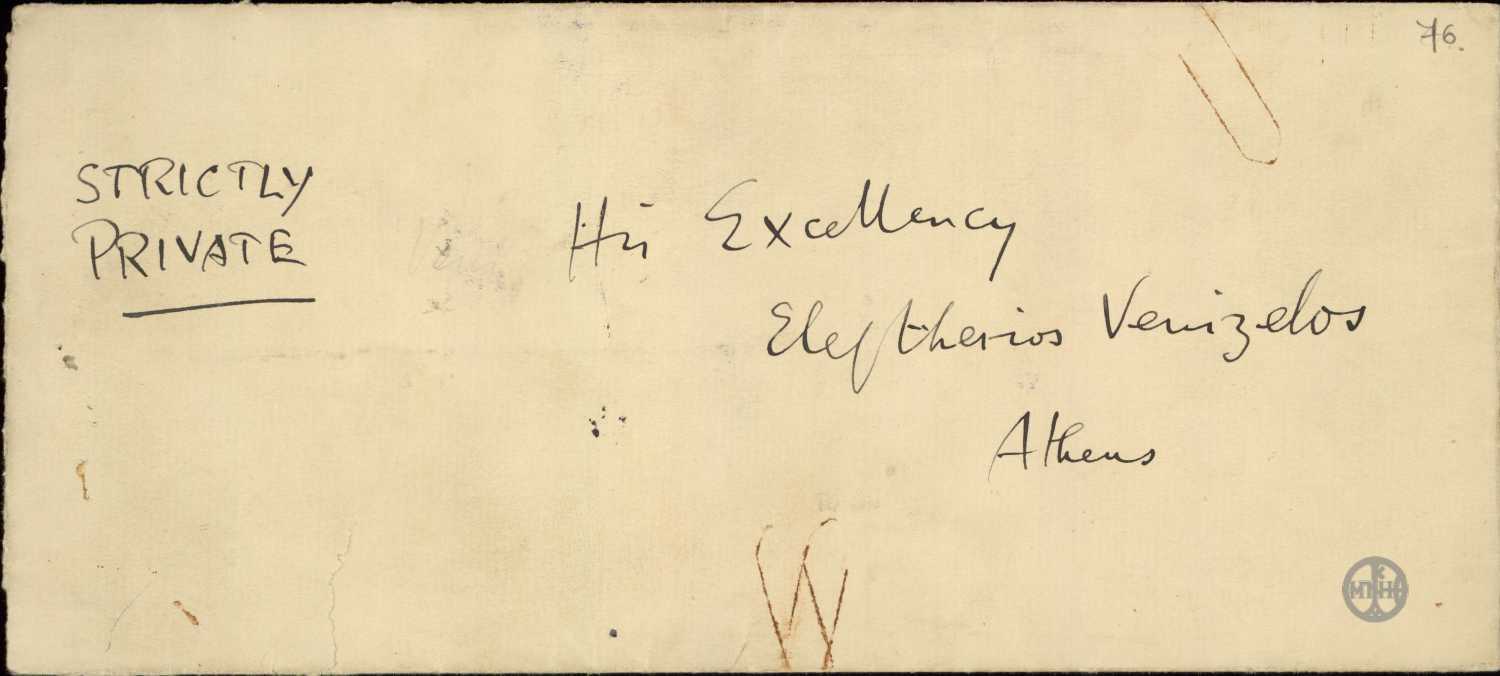 76.
STRICTLY
PRIVATE
His Excellency
Eleftherios Venizelos
Athens